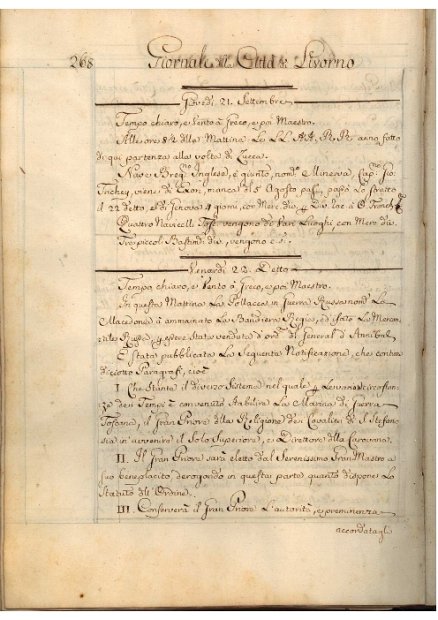 268 Giornale della Città di Livorno
Giovedì 21. Settembre
Tempo chiaro, e Vento a Greco, e poi Maestro.
Alle ore 8½ della Mattina Le LL. AA. RR. anno fatto
di qui partenza alla volta di Lucca.
Nave Inglese, è giunto, nom. Minerva, Cap. Gio.
viene di manca di 5 Agosto pass. passò Lo Stretto
il 22 detto, e di Genova 4 giorni, con Merc. div.
Quattro Navicell. Tos. vengono da Vari Luoghi, con Merci div.
Tre piccol. Bastim. div. vengono e
Venerdì 22. Detto
Tempo chiaro, e Vento a Greco, e poi Maestro.
In questa Mattina La Pollacca in Guerra Russa nom. La
Macedonia à ammainato La Bandiera Regia, ed issato La Mercan-
tile Russa, essere stata venduta d'ord. del General d'Anibal
È stata pubblicata La Seguente Notificazione, che contiene
diciotto Paragrafi, cioè
I. Che Stante il diverso Sistema nel quale Le varie circostan-
ze dei Tempi è convenuto stabilire La Marina di Guerra
Toscana, il Gran Priore della Religione dei Cavalieri di S. Stefano
sia in avvenire il Solo Superiore, e Direttore della Carovana.
II. Il Gran Priore sarà eletto dal Serenissimo Gran Mastro a
suo beneplacito derogando in questa parte quanto dispone Lo
Statuto dell'Ordine.
III. Conserverà il Gran Priore L'autorità, e preminenza
accordatagli